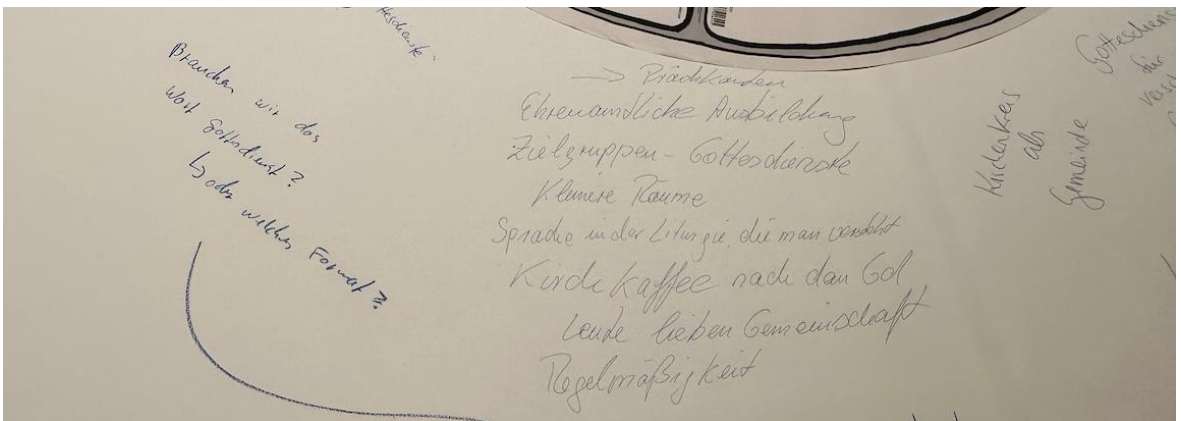 Gottesdienste
Brauchen wir das
Wort Gottesdienst?
↳ oder welches Format?
→ Prädikanten
Ehrenamtliche Ausbildung
Zielgruppen - Gottesdienste
Kleinere Räume
Sprache in der Liturgie, die man versteht
Kirchkaffee nach dem Gd
Leute lieben Gemeinschaft
Regelmäßigkeit
als
Gemeinde
Gottesdienst
für